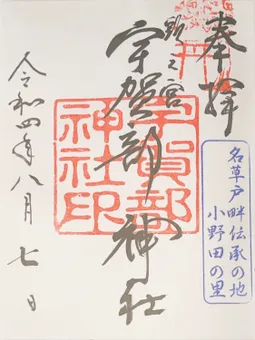 奉拝
頭之宮
宇賀部神社
宇賀部
神社印
名草戸畔伝承の地
小野田の里
令和四年八月七日